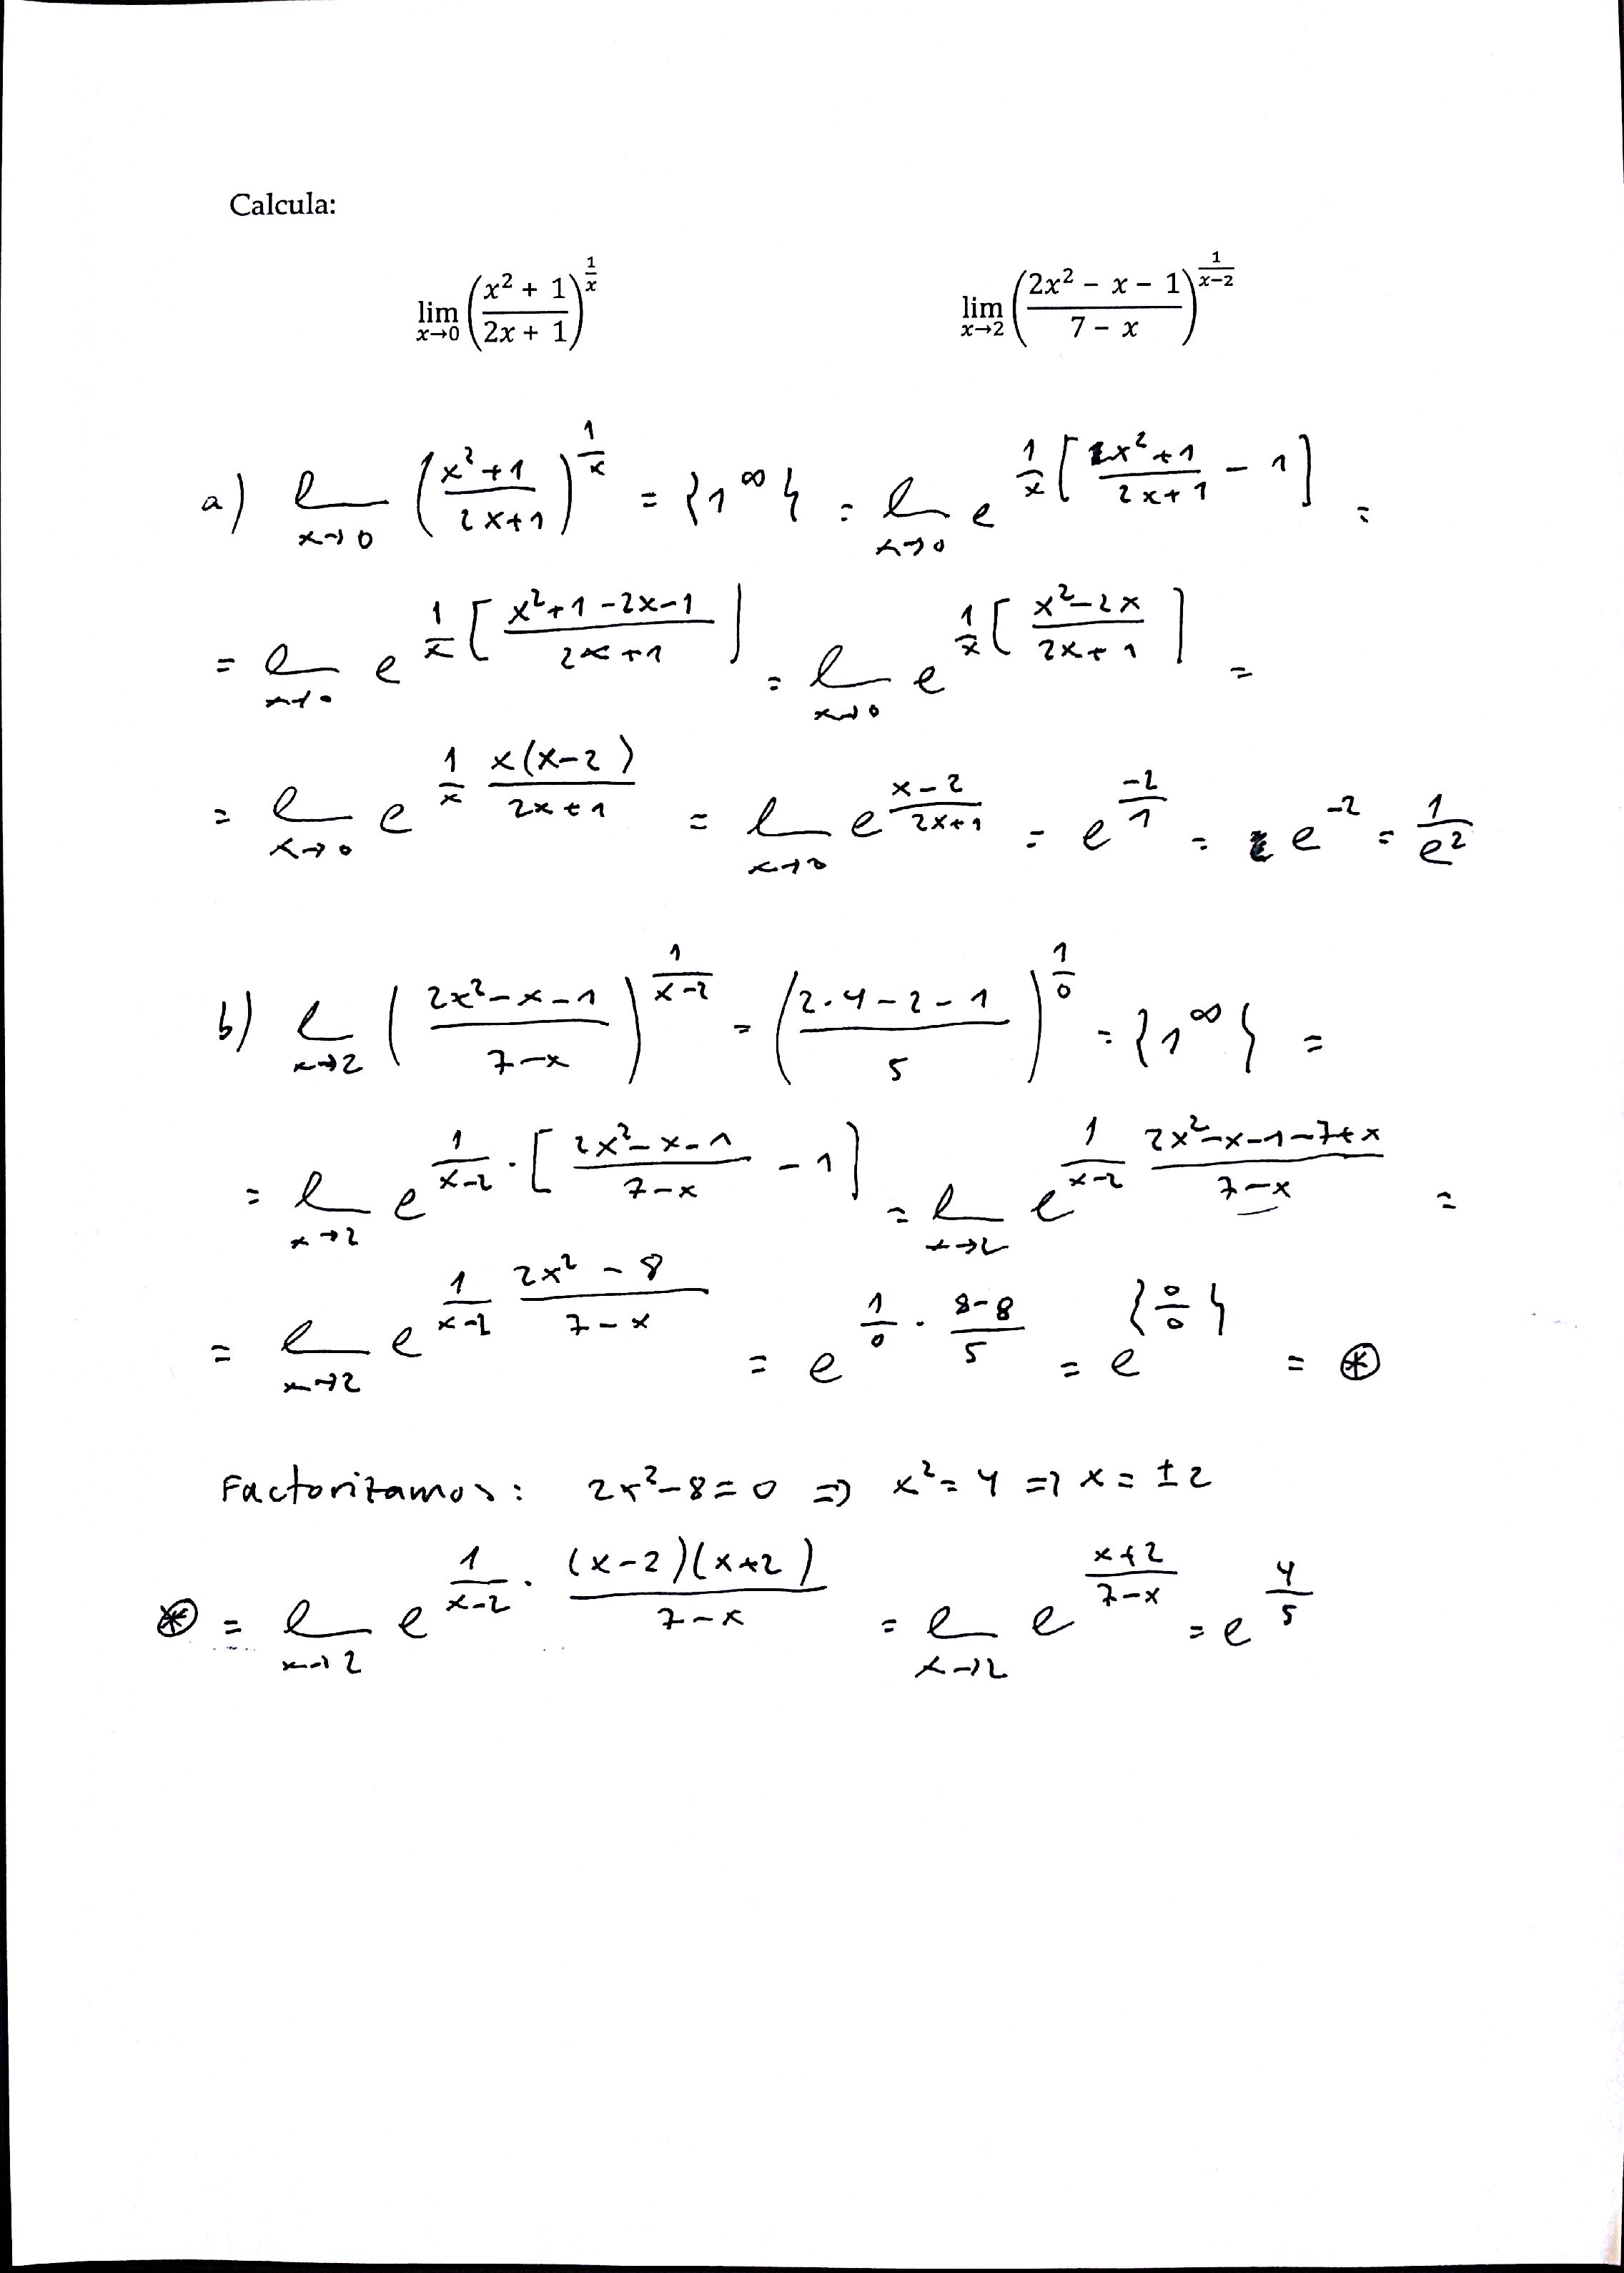 Calcula:
$\lim_{x \to 0} \left(\frac{x^2+1}{2x+1}\right)^{\frac{1}{x}}$ $\lim_{x \to 2} \left(\frac{2x^2-x-1}{7-x}\right)^{\frac{1}{x-2}}$
a) $\lim_{x \to 0} \left(\frac{x^2+1}{2x+1}\right)^{\frac{1}{x}} = \{1^\infty\} = \lim_{x \to 0} e^{\frac{1}{x}\left[\frac{x^2+1}{2x+1} - 1\right]} =$
$= \lim_{x \to 0} e^{\frac{1}{x}\left[\frac{x^2+1-2x-1}{2x+1}\right]} = \lim_{x \to 0} e^{\frac{1}{x}\left[\frac{x^2-2x}{2x+1}\right]} =$
$= \lim_{x \to 0} e^{\frac{1}{x} \frac{x(x-2)}{2x+1}} = \lim_{x \to 0} e^{\frac{x-2}{2x+1}} = e^{\frac{-2}{1}} = e^{-2} = \frac{1}{e^2}$
b) $\lim_{x \to 2} \left(\frac{2x^2-x-1}{7-x}\right)^{\frac{1}{x-2}} = \left(\frac{2 \cdot 4-2-1}{5}\right)^{\frac{1}{0}} = \{1^\infty\} =$
$= \lim_{x \to 2} e^{\frac{1}{x-2} \cdot \left[\frac{2x^2-x-1}{7-x} - 1\right]} = \lim_{x \to 2} e^{\frac{1}{x-2} \frac{2x^2-x-1-7+x}{7-x}} =$
$= \lim_{x \to 2} e^{\frac{1}{x-2} \frac{2x^2-8}{7-x}} = e^{\frac{1}{0} \cdot \frac{8-8}{5}} = e^{\{\frac{0}{0}\}} = \circledast$
Factorizamos: $2x^2-8=0 \Rightarrow x^2=4 \Rightarrow x=\pm 2$
$\circledast = \lim_{x \to 2} e^{\frac{1}{x-2} \cdot \frac{(x-2)(x+2)}{7-x}} = \lim_{x \to 2} e^{\frac{x+2}{7-x}} = e^{\frac{4}{5}}$